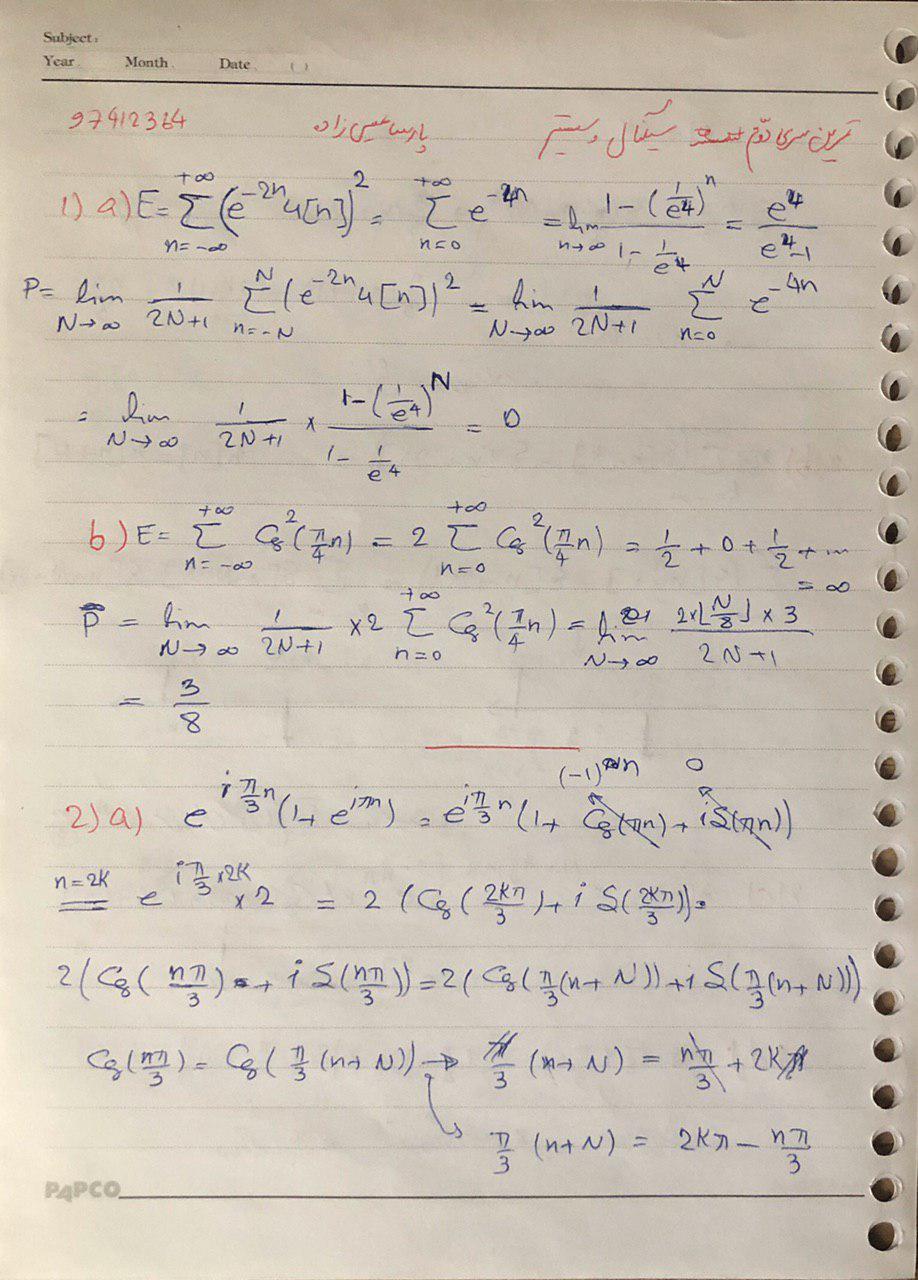 Subject:
Year. Month. Date. ( )
تمرین سری دوم سیگنال و سیستم پارسا عیسی زاده 97412364
1) a) E = \sum_{n=-∞}^{+∞} (e^{-2n} u[n])^2 = \sum_{n=0}^{+∞} e^{-4n} = lim_{n→∞} \frac{1-(\frac{1}{e^4})^n}{1-\frac{1}{e^4}} = \frac{e^4}{e^4-1}
P = lim_{N→∞} \frac{1}{2N+1} \sum_{n=-N}^{N} (e^{-2n} u[n])^2 = lim_{N→∞} \frac{1}{2N+1} \sum_{n=0}^{N} e^{-4n}
= lim_{N→∞} \frac{1}{2N+1} × \frac{1-(\frac{1}{e^4})^N}{1-\frac{1}{e^4}} = 0
b) E = \sum_{n=-∞}^{+∞} Cos^2(\frac{π}{4}n) = 2 \sum_{n=0}^{+∞} Cos^2(\frac{π}{4}n) = \frac{1}{2} + 0 + \frac{1}{2} + ... = ∞
P = lim_{N→∞} \frac{1}{2N+1} ×2 \sum_{n=0}^{+∞} Cos^2(\frac{π}{4}n) = lim_{N→∞} \frac{2×⌊\frac{N}{8}⌋×3}{2N+1}
= \frac{3}{8}
(-1)^n 0
2) a) e^{i\frac{π}{3}n}(1+e^{iπn}) = e^{i\frac{π}{3}n}(1+ Cos(πn) + iS(πn))
n=2K = e^{i\frac{π}{3}×2K} ×2 = 2 (Cos(\frac{2Kπ}{3}) + i S(\frac{2Kπ}{3})) =
2(Cos(\frac{nπ}{3}) + i S(\frac{nπ}{3})) = 2(Cos(\frac{π}{3}(n+N)) + i S(\frac{π}{3}(n+N)))
Cos(\frac{nπ}{3}) = Cos(\frac{π}{3}(n+N)) → \frac{π}{3}(n+N) = \frac{nπ}{3} + 2Kπ
\frac{π}{3}(n+N) = 2Kπ - \frac{nπ}{3}
PAPCO